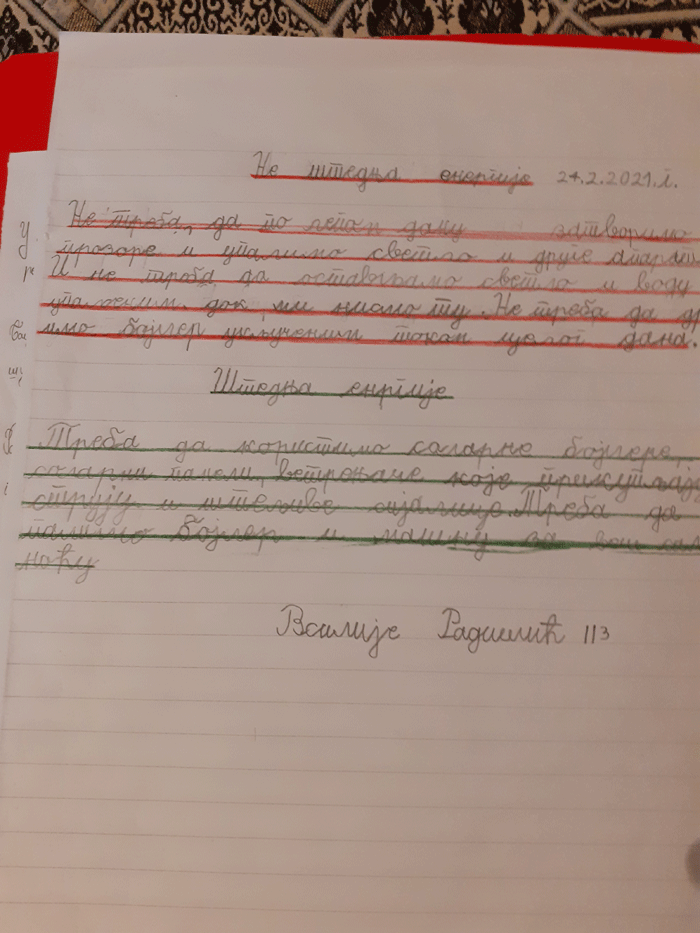 Не штедња енергије 24.2.2021.г.
Не треба, да по лепом дану затворимо
прозоре и упалимо светло и друге апарат
И не треба да остављамо светло и воду
упаљеним док ни нисмо ту. Не треба да др
имо бојлер укљученим токам целог дана.
Штедња енргије
Треба да користимо соларне бојлере,
соларни панели, ветрењаче које прикупљају
струју и штедљиве сијалице. Треба да
палимо бојлер и машину за веш сам
ноћу
Василије 113